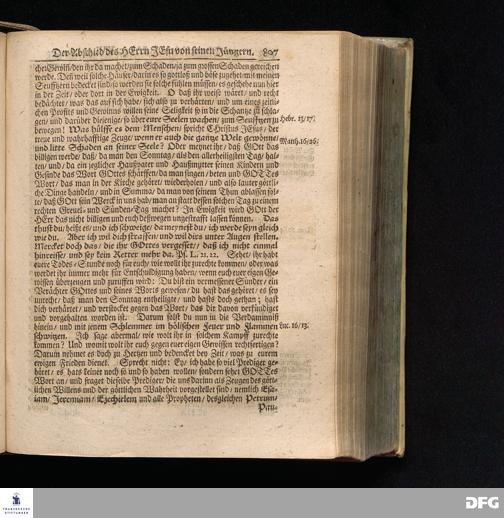 Der Abschied des HErrn JEsu von seinen Jüngern. 807
werde. Deß weil solche Häuser/darin es so gottloß und böse zugehet/mit meinen
Seuffzern bedecket sind/so werden sie solche fühlen müssen/es geschehe nun hier
in der Zeit/ oder dort in der Ewigkeit. O daß ihr weise wäret/ und recht
bedächtet/ was das auf sich habe/ sich also zu verhärten/ und um eines zeitli-
chen Profits und Gewinns willen seine Seligkeit so in die Schantze zu schla-
gen/ und darüber diejenige/ so über eure Seelen wachen/ zum Seuffzen zu
Hebr. 13/17.
bewegen! Was hülffe es dem Menschen/ spricht Christus JEsus/ der
treue und wahrhafftige Zeuge/ wenn er auch die gantze Welt gewönne/
Matth. 16/26.
und litte Schaden an seiner Seele? Oder meynet ihr/ daß GOtt das
billigen werde/ daß/ da man den Sonntag/ als den allerheiligsten Tag/ hal-
ten/ und/ da ein jeglicher Haußvater und Haußmutter seinen Kindern und
Gesinde das Wort GOttes schärffen/ da man singen/ beten und GOTTes
Wort/ das man in der Kirche gehöret/ wiederholen/ und also lauter göttli-
che Dinge handeln/ und in Summa/ da man von seinem Thun ablassen sol-
te/ daß GOtt sein Werck in uns hab/ man an statt dessen solchen Tag zu einem
rechten Greuel- und Sünden-Tag machet? In Ewigkeit wird GOtt der
HErr das nicht billigen und euch deßwegen ungestrafft lassen können. Das
thust du/ heißt es/ und ich schweige/ da meynest du/ ich werde seyn gleich
wie du. Aber ich wil dich straffen/ und wil dirs unter Augen stellen.
Mercket doch das/ die ihr GOttes vergesset/ daß ich nicht einmel
hinreisse/ und sey kein Retter mehr da. Ps. L. 21. 22. Sehet/ ihr habt
eure Todes-Stunde noch für euch/ wie wollt ihr zurechte kommen/ oder was
werdet ihr immer mehr für Entschuldigung haben/ wenn euch euer eigen Ge-
wissen überzeugen und zuruffen wird: Du bist ein vermessener Sünder/ ein
Verächter GOttes und seines Worts gewesen/ du hast das gehöret/ es sey
unrecht/ daß man den Sonntag entheilige/ und hasts doch gethan; hast
dich verhärtet/ und verstocket gegen das Wort/ das dir davon verkündiget
und vorgehalten worden ist: Darum solst du nun in die Verdammniß
hinein/ und mit jenem Schlemmer im höllischen Feuer und Flammen
Luc. 16/23.
schwitzen. Ich sage abermal/ wie wolt ihr in solchem Kampff zurechte
kommen? Und womit wollt ihr euch gegen euer eigen Gewissen rechtfertigen?
Darum nehmet es doch zu Hertzen und bedencket bey Zeit/ was zu eurem
ewigen Frieden dienet. Sprecht nicht: Ey/ ich habe so viel Prediger ge-
höret/ es hats keiner noch so und so haben wollen/ sondern sehet GOTTes
Wort an/ und fraget dieselbe Prediger/ die uns darinn als Zeugen des gött-
lichen Willens und der göttlichen Wahrheit vorgestellet sind/ nemlich Esa-
iam/ Jeremiam/ Ezechielem und alle Propheten/ desgleichen Petrum/
Pau-
FRANCKESCHE STIFTUNGEN
DFG